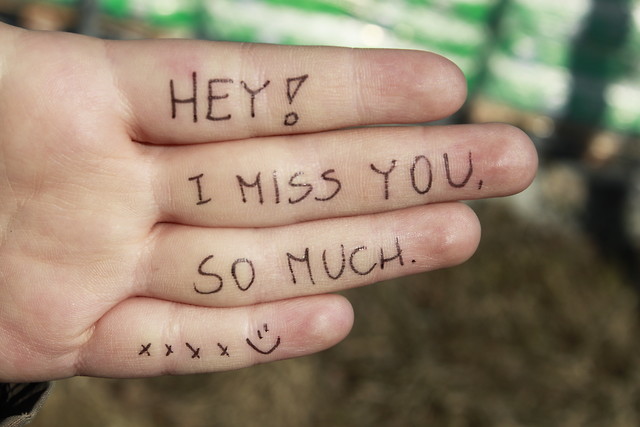 HEY!
I MISS YOU,
SO MUCH.
x x x x